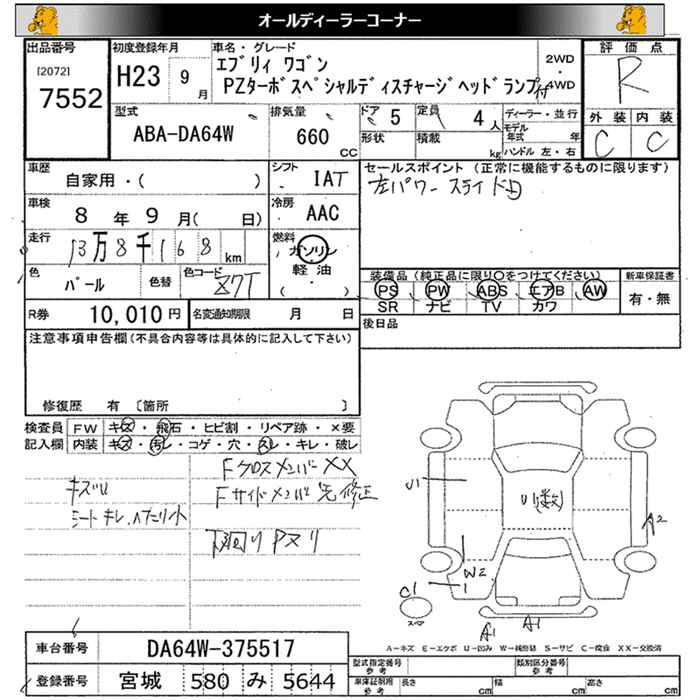 オールディーラーコーナー
出品番号
[2072]
7552
初度登録年月
H23 9月
車名・グレード
エブリィ ワゴン
PZターボスペシャルディスチャージヘッドランプ付
2WD
・
4WD
評価点
R
外装 内装
C C
型式
ABA-DA64W
排気量
660
CC
ドア 5
定員 4人
形状
積載 kg
ディーラー・並行
モデル年式 年
ハンドル 左・右
車歴
自家用・( )
シフト
IAT
セールスポイント (正常に機能するものに限ります)
左パワースライドD
車検
8年 9月( 日)
冷房
AAC
走行
13万8千168km
燃料
ガソリン
軽油
( ・ )
色
パール
色替
色コード
Z7T
装備品 (純正品に限り○をつけてください)
PS PW ABS エアB AW
SR ナビ TV カワ
新車保証書
有・無
R券 10,010円
名変通知期限 月 日
後日品
注意事項申告欄(不具合内容等は具体的に記入して下さい)
修復歴 有 〔箇所 〕
検査員記入欄
FW キズ・飛石・ヒビ割・リペア跡・×要
内装 キズ・汚レ・コゲ・穴・スレ・キレ・破レ
キズU
シートキレ、ヘタリ小
Fクロスメンバー XX
Fサイドメンバー先修正
下回りPヌリ
U1
U(数)
A2
W2
C1
スペア
A1
A1
A-キズ E-エクボ U-凹み W-補修跡 S-サビ C-腐食 XX-交換済
車台番号
DA64W-375517
登録番号
宮城 580 み 5644
型式指定番号
参考
類別区分番号
参考
車庫証明用
参考
長さ cm
幅 cm
高さ cm